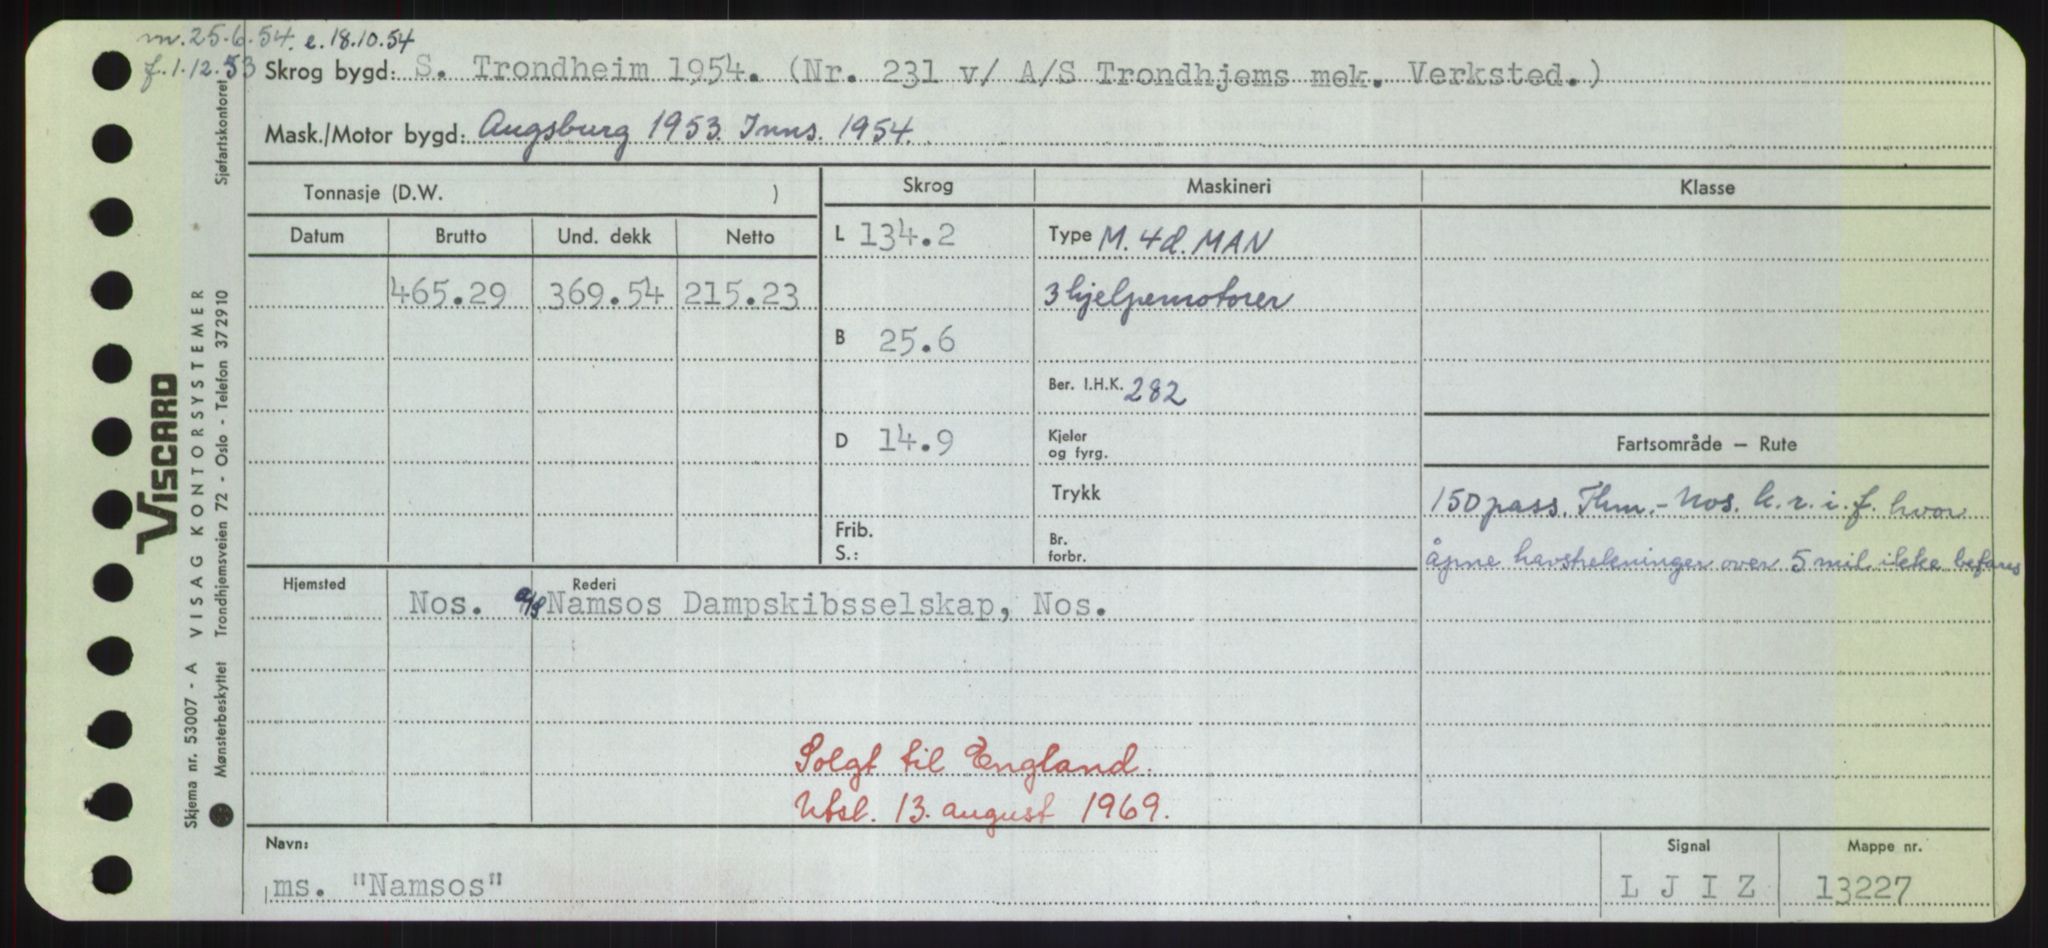 m. 25.6.54. e. 18.10.54
f. 1.12.53 Skrog bygd: S. Trondheim 1954. (Nr. 231 v/ A/S Trondhjems mek. Verksted.)
Mask./Motor bygd: Augsburg 1953. Inns. 1954.
Tonnasje (D.W. ) Skrog Maskineri Klasse
Datum Brutto Und. dekk Netto L 134.2 Type M. 4d. MAN
465.29 369.54 215.23 3 hjelpemotorer
B 25.6
Ber. I.H.K. 282
D 14.9 Kjeler og fyrg. Fartsområde — Rute
Trykk 150 pass. Thm.- Nos. k. r. i. f. hvor
Frib. S.: Br. forbr. åpne havstrekninger over 5 mil ikke befares
Hjemsted Rederi
Nos. A/S Namsos Dampskibsselskap, Nos.
Solgt til England.
Utsl. 13. august 1969.
Navn: Signal Mappe nr.
ms. "Namsos" L J I Z 13227
VISCARD
Skjema nr. 53007 - A VISAG KONTORSYSTEMER
Mønsterbeskyttet Trondhjemsveien 72 - Oslo - Telefon 372910 Sjøfartskontoret